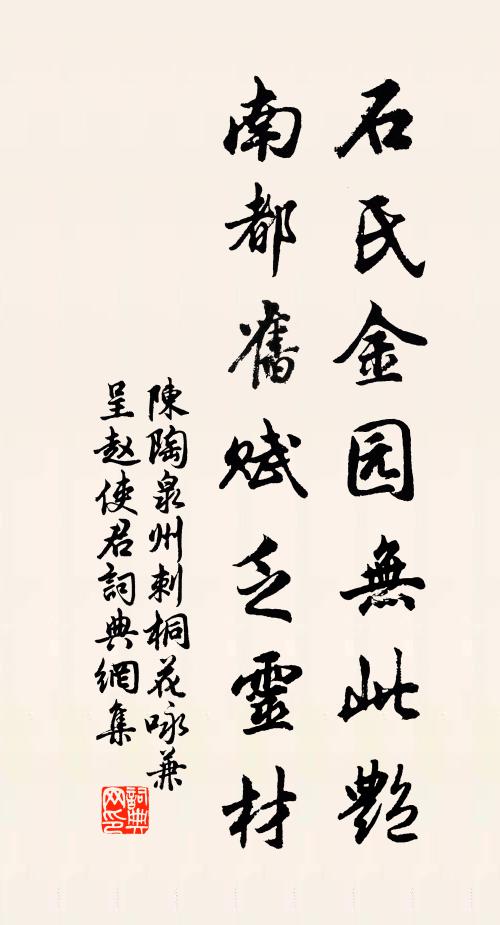 石氏金园無此艷
南都舊賦乏靈材
陳陶泉州刺桐花咏兼
呈赵使君詞典網集
詞典网印